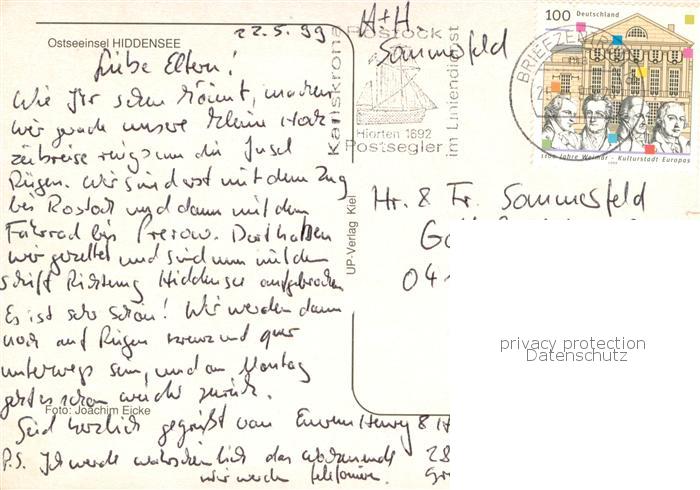 22.5.99
H+H
Sommerfeld
Ostseeinsel HIDDENSEE
Liebe Eltern!
Wie Ihr sehen könnt, machen
wir gerade unsere kleine
rings um die Insel
Rügen. Wir sind erst mit dem Zug
bei Rostock und dann mit dem
Fahrrad bis Prerow. Dort haben
wir gezeltet und sind nun mit dem
Schiff Richtung Hiddensee aufgebrochen
Es ist sehr schön! Wir werden dann
noch auf Rügen kreuz und quer
unterwegs sein, und am Montag
geht es schon wieder zurück.
Foto: Joachim Eicke
Seid herzlich gegrüßt von Eurem Henry & H
P.S. Ich werde wahrscheinlich das Wochenende 28
wir werden telefonieren.
UP-Verlag Kiel
Karlskrona
Rostock
Hiorten 1692
Postsegler
im Liniendienst
BRIEFZENTRUM
100 Deutschland
1100 Jahre Weimar - Kulturstadt Europas
1999
Hr. & Fr. Sommerfeld
04
privacy protection
Datenschutz